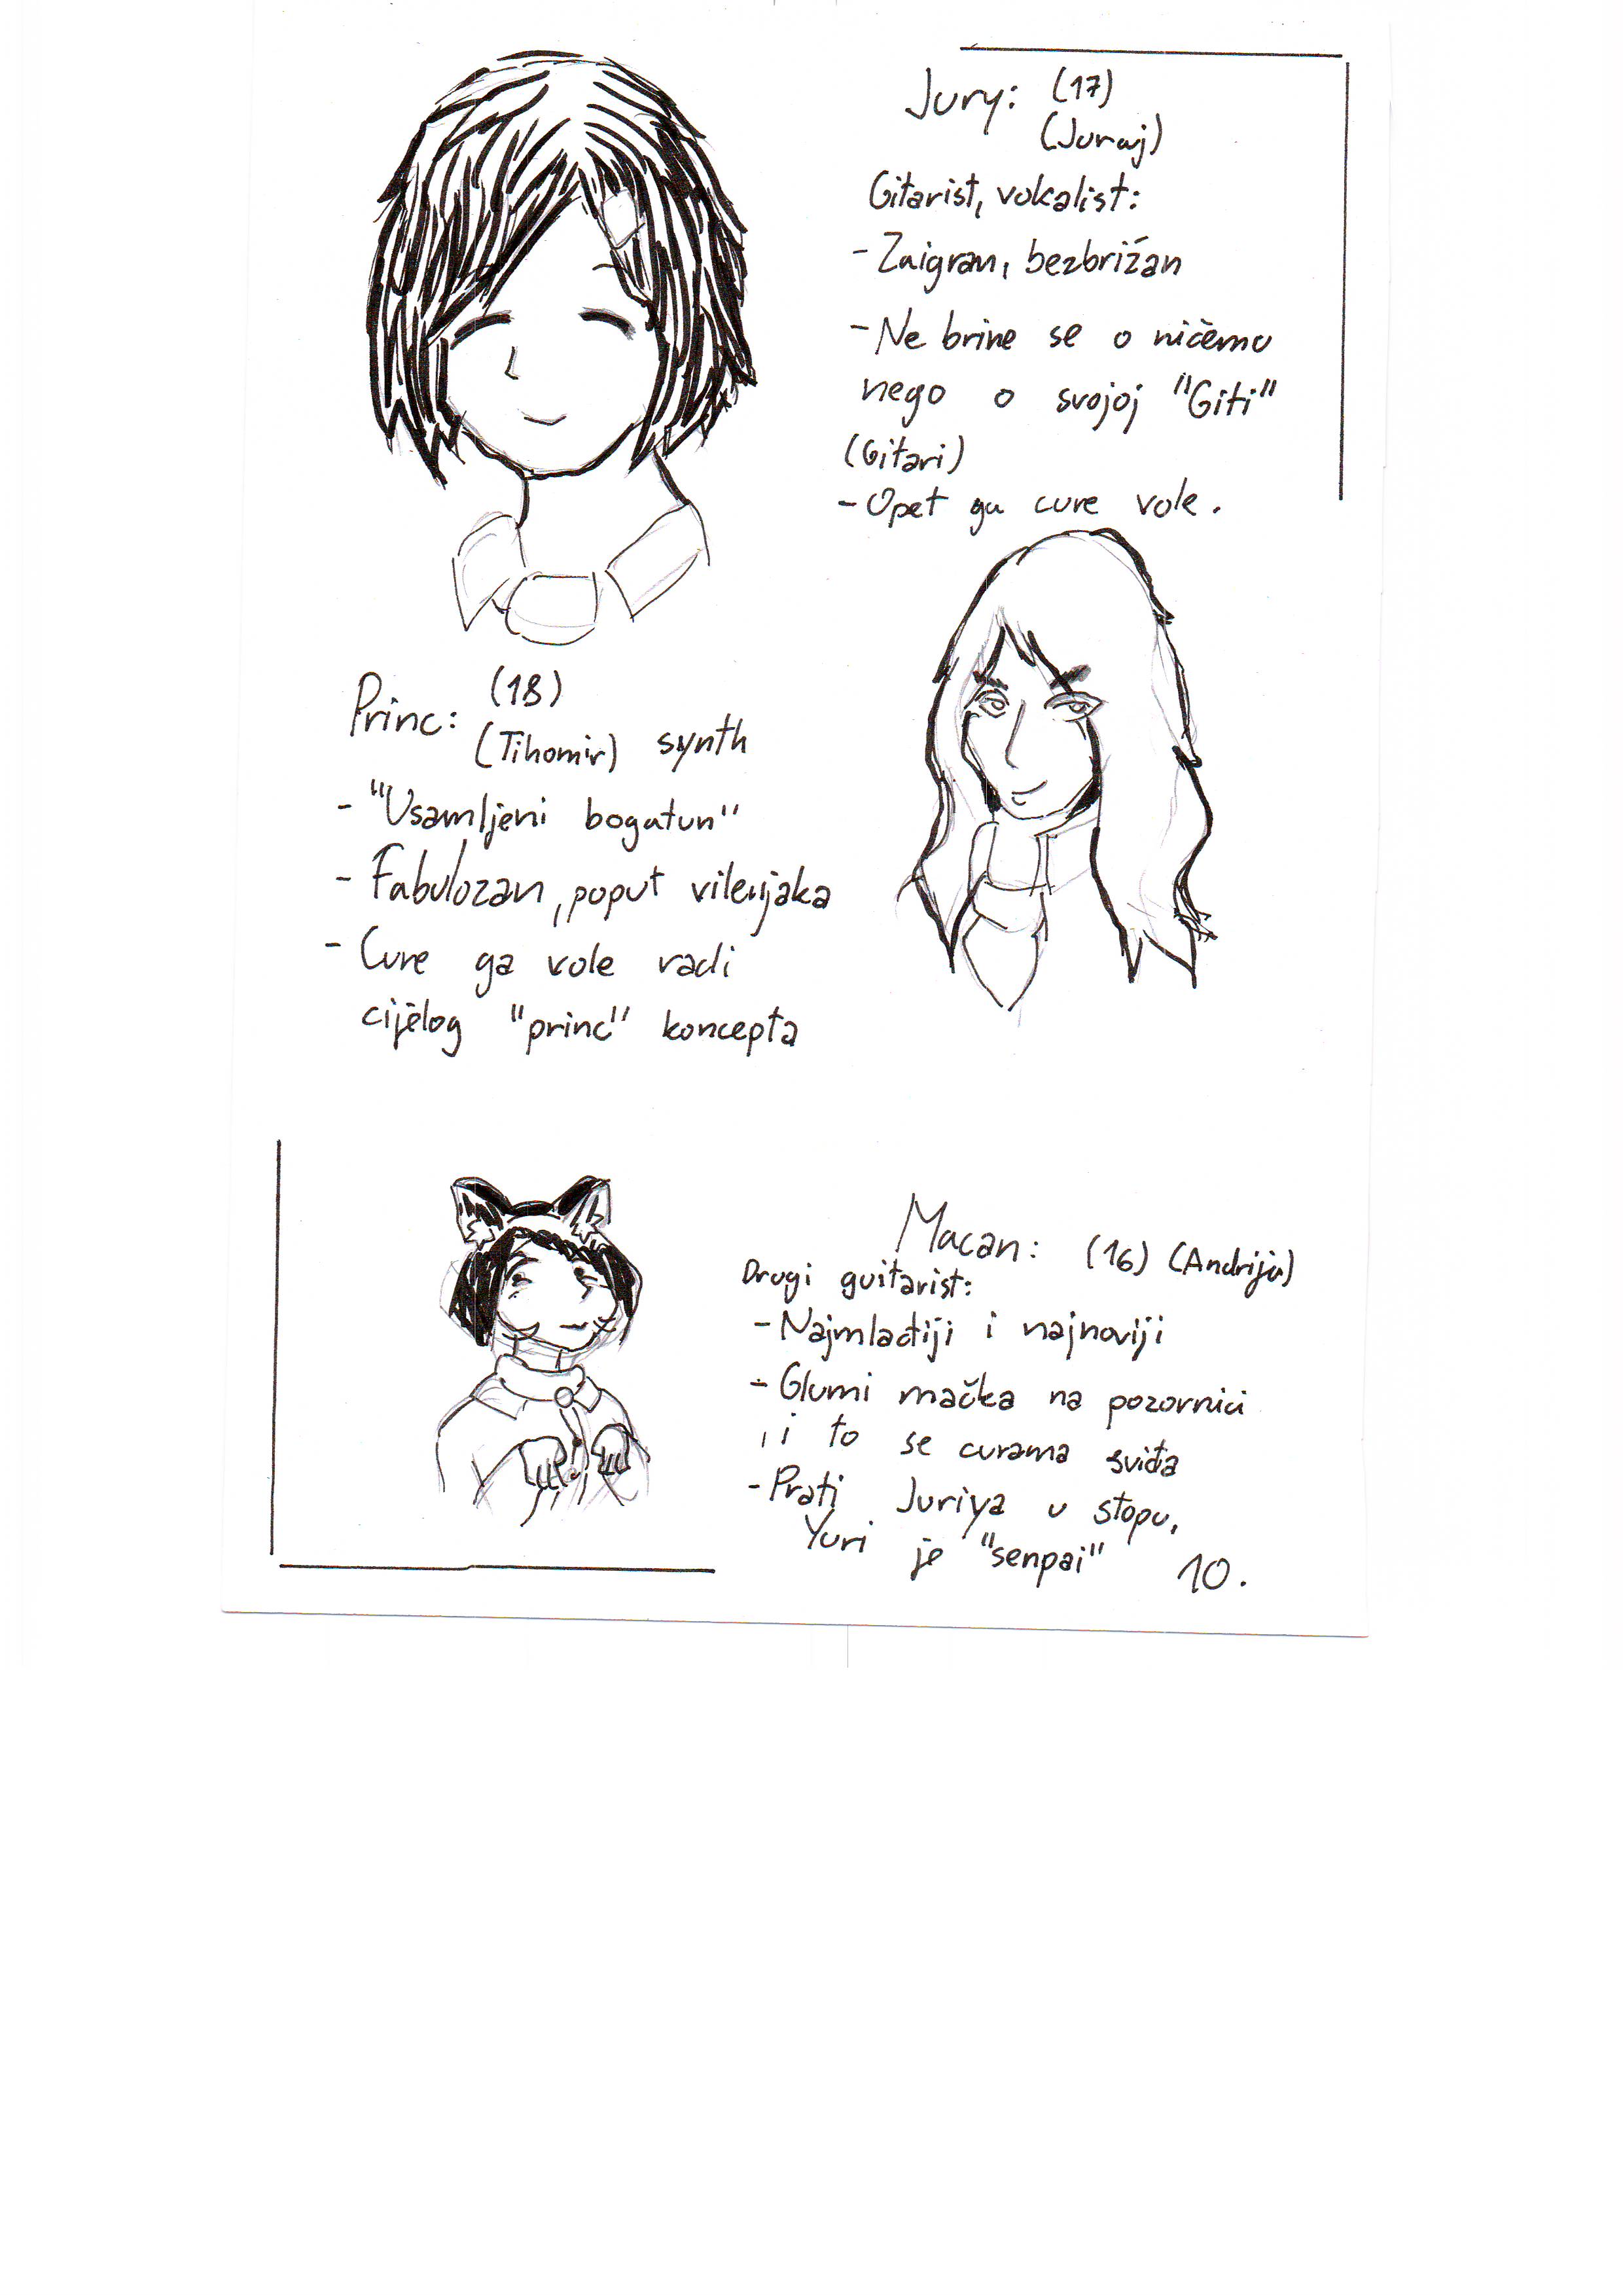 Jury: (17)
(Juraj)
Gitarist, vokalist:
- Zaigran, bezbrižan
- Ne brine se o ničemu
nego o svojoj "Giti"
(Gitari)
- Opet ga cure vole.
Princ: (18)
(Tihomir) synth
- "Usamljeni bogatun"
- Fabulozan, poput vilenjaka
- Cure ga vole radi
cijelog "princ" koncepta
Macan: (16) (Andrija)
Drugi guitarist:
- Najmlađiji i najnoviji
- Glumi mačka na pozornici
, i to se curama sviđa
- Prati Juriya u stopu,
Yuri je "senpai"
10.